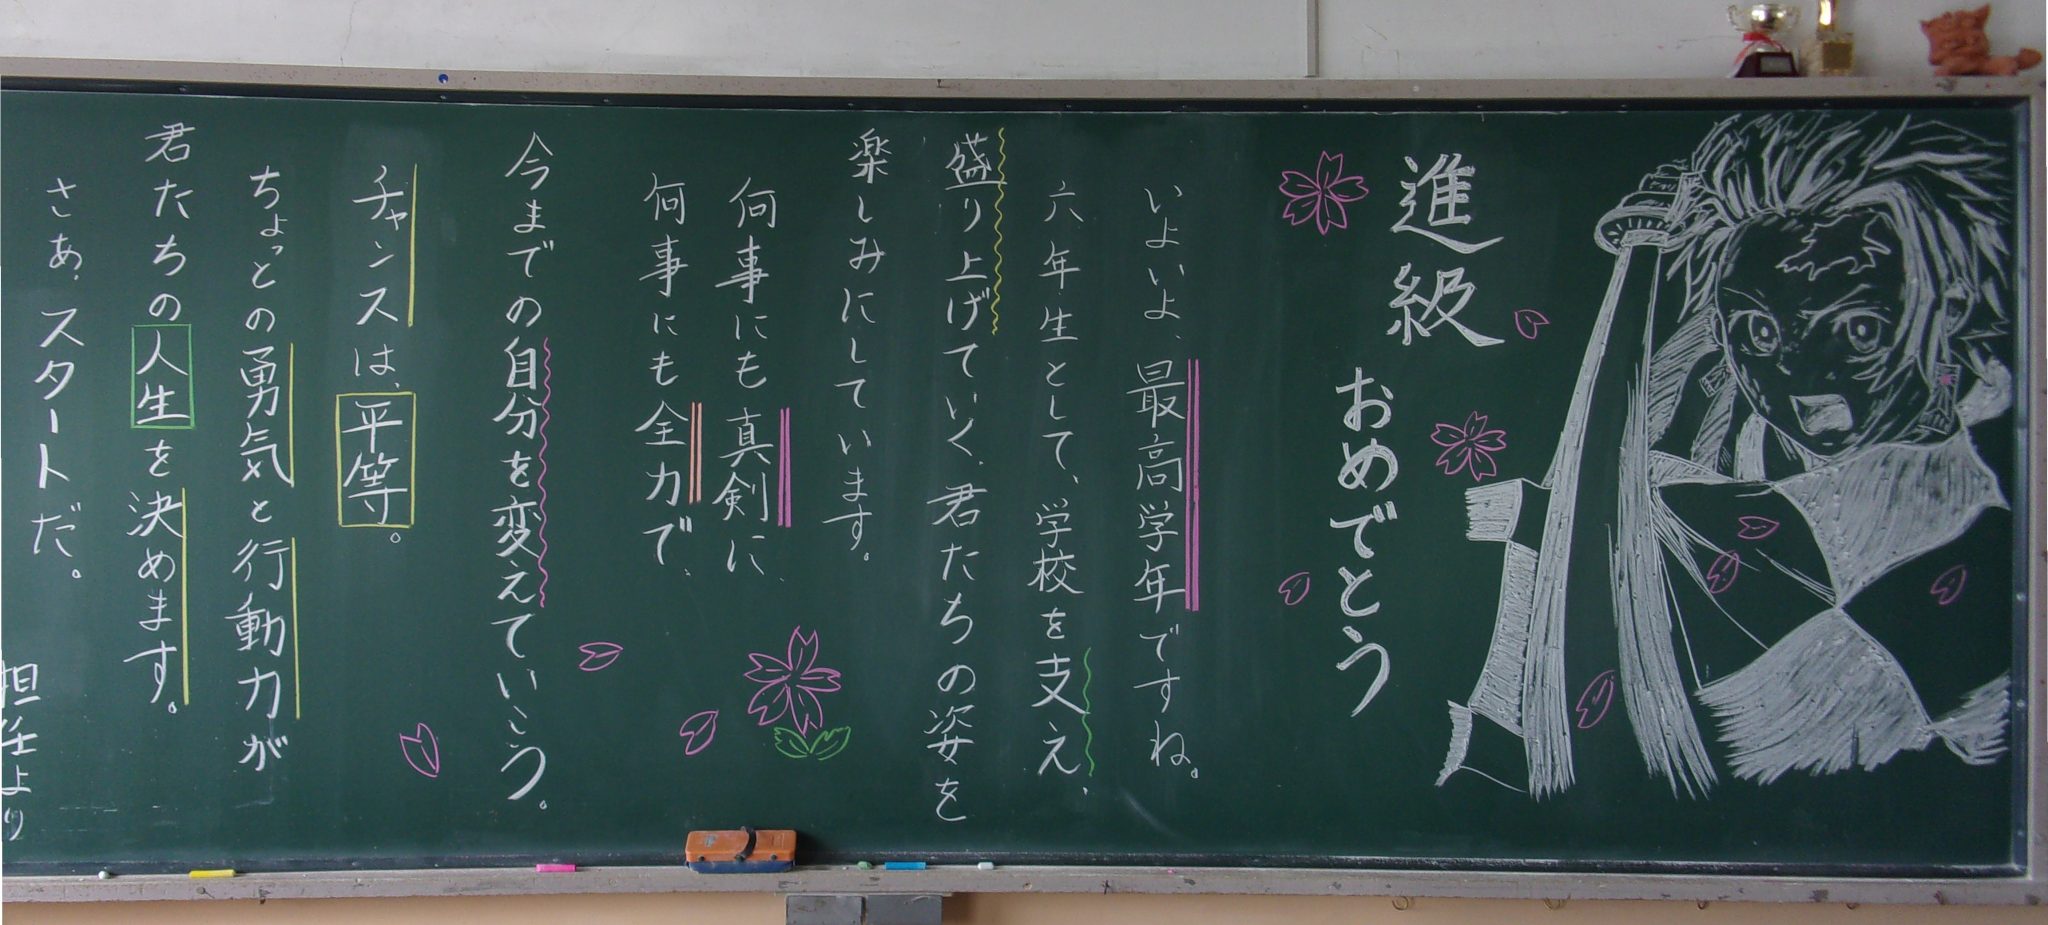 進級
おめでとう
いよいよ、最高学年ですね。
六年生として、学校を支え、
盛り上げていく、君たちの姿を
楽しみにしています。
何事にも真剣に、
何事にも全力で、
今までの自分を変えていこう。
チャンスは、平等。
ちょっとの勇気と行動力が
君たちの人生を決めます。
さぁ、スタートだ。
担任より